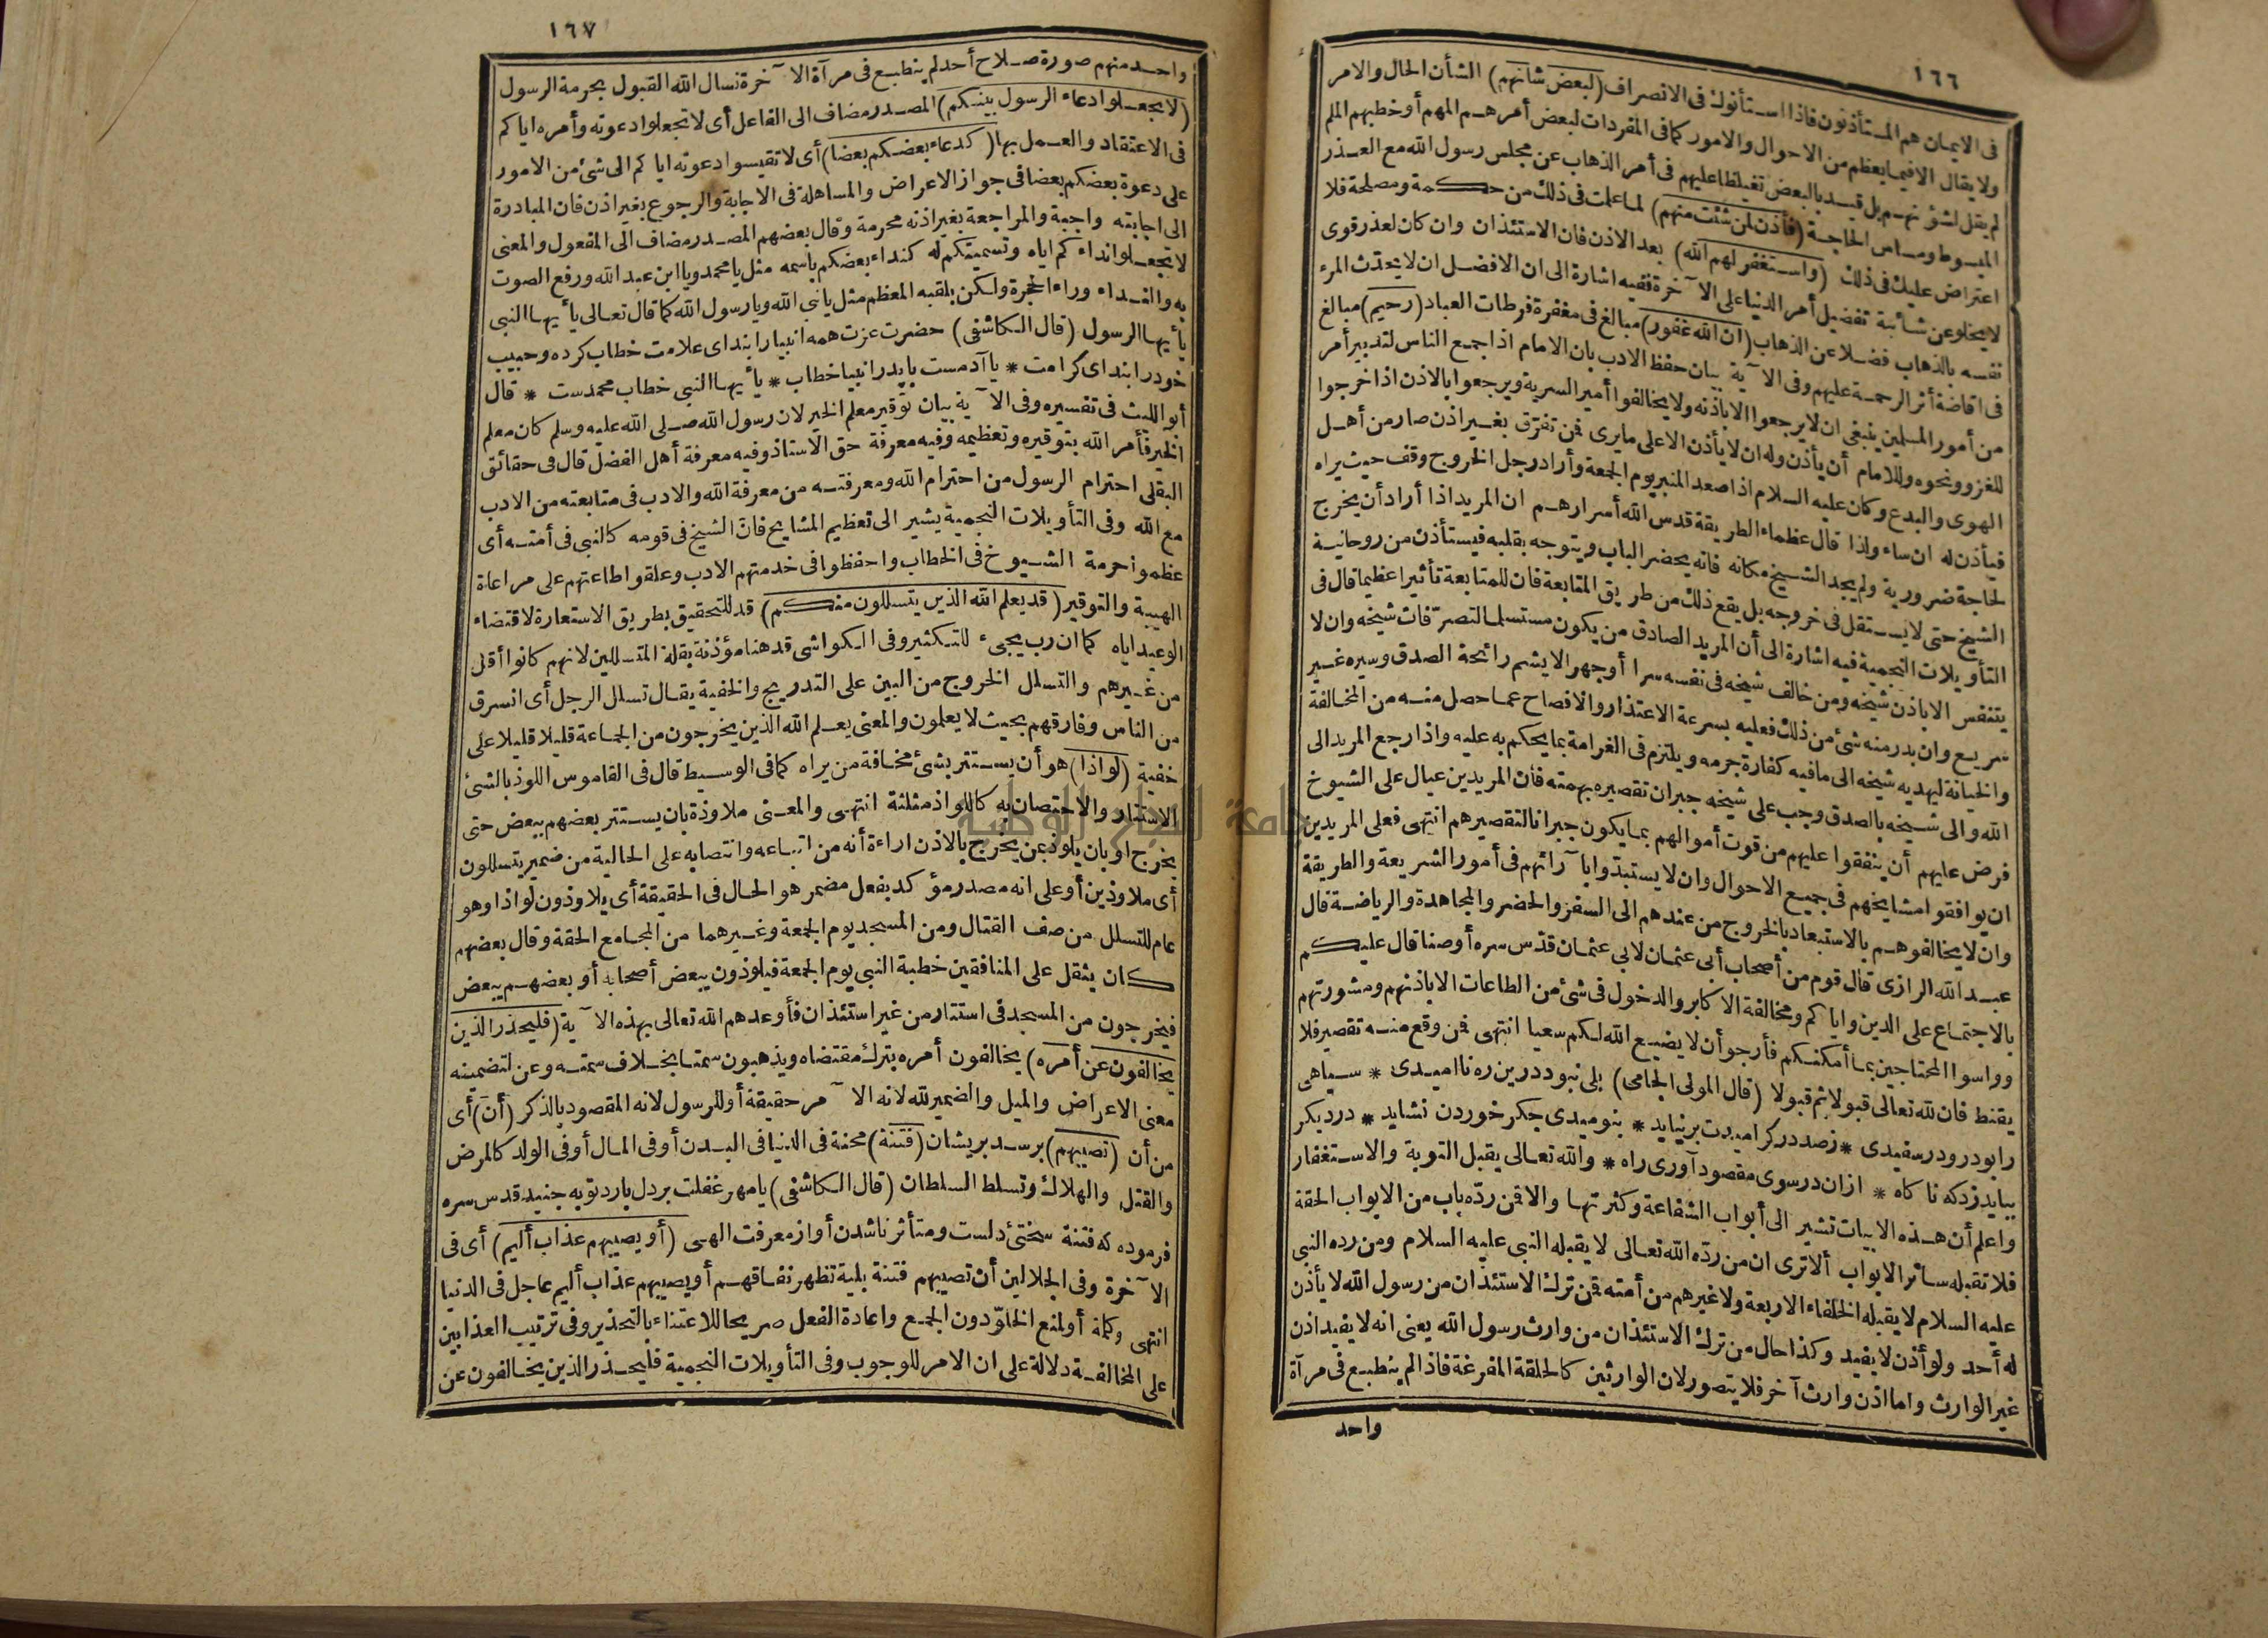 ١٦٦
فى الايمان هم المستأذنون فاذا استأذنوك فى الانصراف (لبعض شانهم) الشأن الحال والامر
ولا يقال الا فيما يعظم من الاحوال والامور كما فى المفردات لبعض أمرهم المهم أو خطبهم الملم
لم يقل لشؤنهم بل قيد بالبعض تغليظا عليهم فى أمر الذهاب عن مجلس رسول الله مع العذر
المبسوط ومساس الحاجة (فأذن لمن شئت منهم) لما علمت فى ذلك من حكمة ومصلحة فلا
اعتراض عليك فى ذلك (واستغفر لهم الله) بعد الاذن فان الاستئذان وان كان لعذر قوى
لا يخلو عن شائبة تفضيل أمر الدنيا على الآخرة ففيه اشارة الى ان الافضل ان لا يحدّث المرء
نفسه بالذهاب فضلا عن الذهاب (ان الله غفور) مبالغ فى مغفرة فرطات العباد (رحيم) مبالغ
فى افاضة أثر الرحمة عليهم وفى الآية بيان حفظ الادب بان الامام اذا جمع الناس لتدبير أمر
من أمور المسلمين ينبغى ان لا يرجعوا الا باذنه ولا يخالفوا أمير السرية ويرجعوا بالاذن اذا خرجوا
للغزو ونحوه وللامام أن يأذن وله ان لا يأذن الا على ما يرى فمن تفرّق بغير اذن صار من أهل
الهوى والبدع وكان عليه السلام اذا صعد المنبر يوم الجمعة وأراد رجل الخروج وقف حيث يراه
فيأذن له ان ساء ولذا قال عظماء الطريقة قدس الله أسرارهم ان المريد اذا أراد أن يخرج
لحاجة ضرورية ولم يجد الشيخ مكانه فانه يحضر الباب ويتوجه بقلبه فيستأذن من روحانية
الشيخ حتى لا يستقل فى خروجه بل يقع ذلك من طريق المتابعة فان للمتابعة تأثيرا عظيما قال فى
التأويلات النجمية فيه اشارة الى أن المريد الصادق من يكون مستسلما لتصرّفات شيخه وان لا
يتنفس الا باذن شيخه ومن خالف شيخه فى نفسه سرا أوجهرا لا يشم رائحة الصدق وسيره غير
سريع وان بدر منه شئ من ذلك فعليه بسرعة الاعتذار والافصاح عما حصل منه من المخالفة
والخيانة ليهديه شيخه الى ما فيه كفارة جرمه ويلتزم فى الغرامة بما يحكم به عليه واذا رجع المريد الى
الله والى شيخه بالصدق وجب على شيخه جبران تقصيره بهمته فان المريدين عيال على الشيوخ
فرض عليهم أن ينفقوا عليهم من قوت أموالهم بما يكون جبرانا لتقصيرهم انتهى فعلى المريدين
ان يوافقوا مشايخهم فى جميع الاحوال وان لا يستبدّوا باآرائهم فى أمور الشريعة والطريقة
وان لا يخالفوهم بالاستبعاد بالخروج من عندهم الى السفر والحضر والمجاهدة والرياضة قال
عبد الله الرازى قال قوم من أصحاب أبى عثمان لابى عثمان قدّس سره أوصنا قال عليكم
بالاجتماع على الدين واياكم ومخالفة الاكابر والدخول فى شئ من الطاعات الا باذنهم ومشورتهم
وواسوا المحتاجين بما أمكنكم فأرجو أن لا يضيع الله لكم سعيا انتهى فمن وقع منه تقصير فلا
يقنط فان لله تعالى قبولا ثم قبولا (قال المولى الجامى) بلى نبود درين ره نااميدى * سياهى
رابود رودر سفيدى * زصد در كراميدت برنيايد * بنوميدى جكر خوردن نشايد * درديكر
ببايد زدكه نا كاه * ازان درسوى مقصود آورى راه * والله تعالى يقبل التوبة والاستغفار
واعلم أن هذه الابيات تشير الى أبواب الشفاعة وكثرتها والا فمن ردّه باب من الابواب الحقة
فلا تقبله سائر الابواب ألا ترى ان من ردّه الله تعالى لا يقبله النبى عليه السلام ومن رده النبى
عليه السلام لا يقبله الخلفاء الاربعة ولا غيرهم من أمته فمن ترك الاستئذان من رسول الله لا يأذن
له أحد ولو أذن لا يفيد وكذا حال من ترك الاستئذان من وارث رسول الله يعنى انه لا يفيد اذن
غير الوارث واما اذن وارث آخر فلا يتصور لان الوارثين كالحلقة المفرغة فاذا لم ينطبع فى مرآة
واحد
١٦٧
واحد منهم صورة صلاح أحد لم ينطبع فى مرآة الآخرة نسال الله القبول بحرمة الرسول
(لا تجعلوا دعاء الرسول بينكم) المصدر مضاف الى الفاعل أى لا تجعلوا دعوته وأمره اياكم
فى الاعتقاد والعمل بها (كدعاء بعضكم بعضا) أى لا تقيسوا دعوته اياكم الى شئ من الامور
على دعوة بعضكم بعضا فى جواز الاعراض والمساهلة فى الاجابة والرجوع بغير اذن فان المبادرة
الى اجابته واجبة والمراجعة بغير اذنه محرمة وقال بعضهم المصدر مضاف الى المفعول والمعنى
لا تجعلوا نداءكم اياه وتسميتكم له كنداء بعضكم باسمه مثل يا محمد ويا ابن عبد الله ورفع الصوت
به والنداء وراء الحجرة ولكن بلقبه المعظم مثل يا نبى الله ويا رسول الله كما قال تعالى يا أيها النبى
يا أيها الرسول (قال الكاشفى) حضرت عزت همه انبيا را بنداى علامت خطاب كرده وحبيب
خود را بنداى كرامت * يا آدمست با پدر انبيا خطاب * يا أيها النبى خطاب محمدست * قال
أبو الليث فى تفسيره وفى الآية بيان توقير معلم الخير لان رسول الله صلى الله عليه وسلم كان معلم
الخير فأمر الله بتوقيره وتعظيمه وفيه معرفة حق الاستاذ وفيه معرفة أهل الفضل قال فى حقائق
البقلى احترام الرسول من احترام الله ومعرفته من معرفة الله والادب فى متابعته من الادب
مع الله وفى التأويلات النجمية يشير الى تعظيم المشايخ فان الشيخ فى قومه كالنبى فى أمته أى
عظموا حرمة الشيوخ فى الخطاب واحفظوا فى خدمتهم الادب وعلقوا طاعتهم على مراعاة
الهيبة والتوقير (قد يعلم الله الذين يتسللون منكم) قد للتحقيق بطريق الاستعارة لاقتضاء
الوعيد اياه كما ان رب يجىء للتكثير وفى الكواشى قد هنا مؤذنة بقلة المتسللين لانهم كانوا أقل
من غيرهم والتسلل الخروج من البين على التدريج والخفية يقال تسلل الرجل أى انسرق
من الناس وفارقهم بحيث لا يعلمون والمعنى يعلم الله الذين يخرجون من الجماعة قليلا قليلا على
خفية (لواذا) هو أن يستتر بشئ مخافة من يراه كما فى الوسيط قال فى القاموس اللوذ بالشئ
الاستتار والاحتصان به كاللواذ مثلثة انتهى والمعنى ملاوذة بان يستتر بعضهم ببعض حتى
يخرج او بان يلوذ بمن يخرج بالاذن اراءة أنه من اتباعه وانتصابه على الحالية من ضمير يتسللون
أى ملاوذين أو على انه مصدر مؤكد بفعل مضمر هو الحال فى الحقيقة أى يلاوذون لواذا وهو
عام للتسلل من صف القتال ومن المسجد يوم الجمعة وغيرهما من المجامع الحقة وقال بعضهم
كان يثقل على المنافقين خطبة النبى يوم الجمعة فيلوذون ببعض أصحابه أو بعضهم ببعض
فيخرجون من المسجد فى استتار من غير استئذان فأوعدهم الله تعالى بهذه الآية (فليحذر الذين
يخالفون عن أمره) يخالفون أمره بترك مقتضاه ويذهبون سمتا بخلاف سمته وعن لتضمينه
معنى الاعراض والميل والضمير لله لانه الآمر حقيقة أو للرسول لانه المقصود بالذكر (أن) أى
من أن (تصيبهم) برسد بريشان (فتنة) محنة فى الدنيا فى البدن أو فى المال أو فى الولد كالمرض
والقتل والهلاك وتسلط السلطان (قال الكاشفى) يا مهر غفلت بردل يا ردتوبه جنيد قدس سره
فرموده كه فتنة سختئ دلست ومتأثر ناشدن أو از معرفت الهى (أو يصيبهم عذاب أليم) أى فى
الآخرة وفى الجلالين أن تصيبهم فتنة بلية تظهر نفاقهم أو يصيبهم عذاب أليم عاجل فى الدنيا
انتهى وكلمة أو لمنع الخلوّ دون الجمع واعادة الفعل صريحا للاعتناء بالتحذير وفى ترتيب العذابين
على المخالفة دلالة على ان الامر للوجوب وفى التأويلات النجمية فليحذر الذين يخالفون عن
جامعة النجاح الوطنية